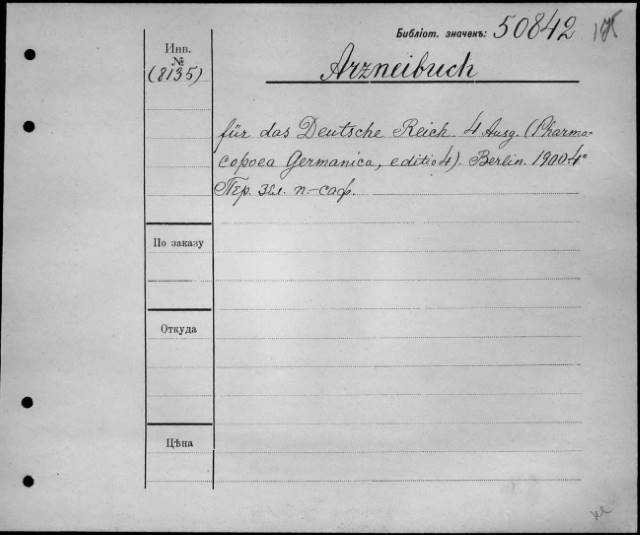 Библіот. значенъ: 50842
Инв.
№
(8135)
Arzneibuch
für das Deutsche Reich. 4 Ausg. (Pharma-
copoea Germanica, editio 4). Berlin. 1900. 4°
Пер. зел. п-саф.
По заказу
Откуда
Цѣна